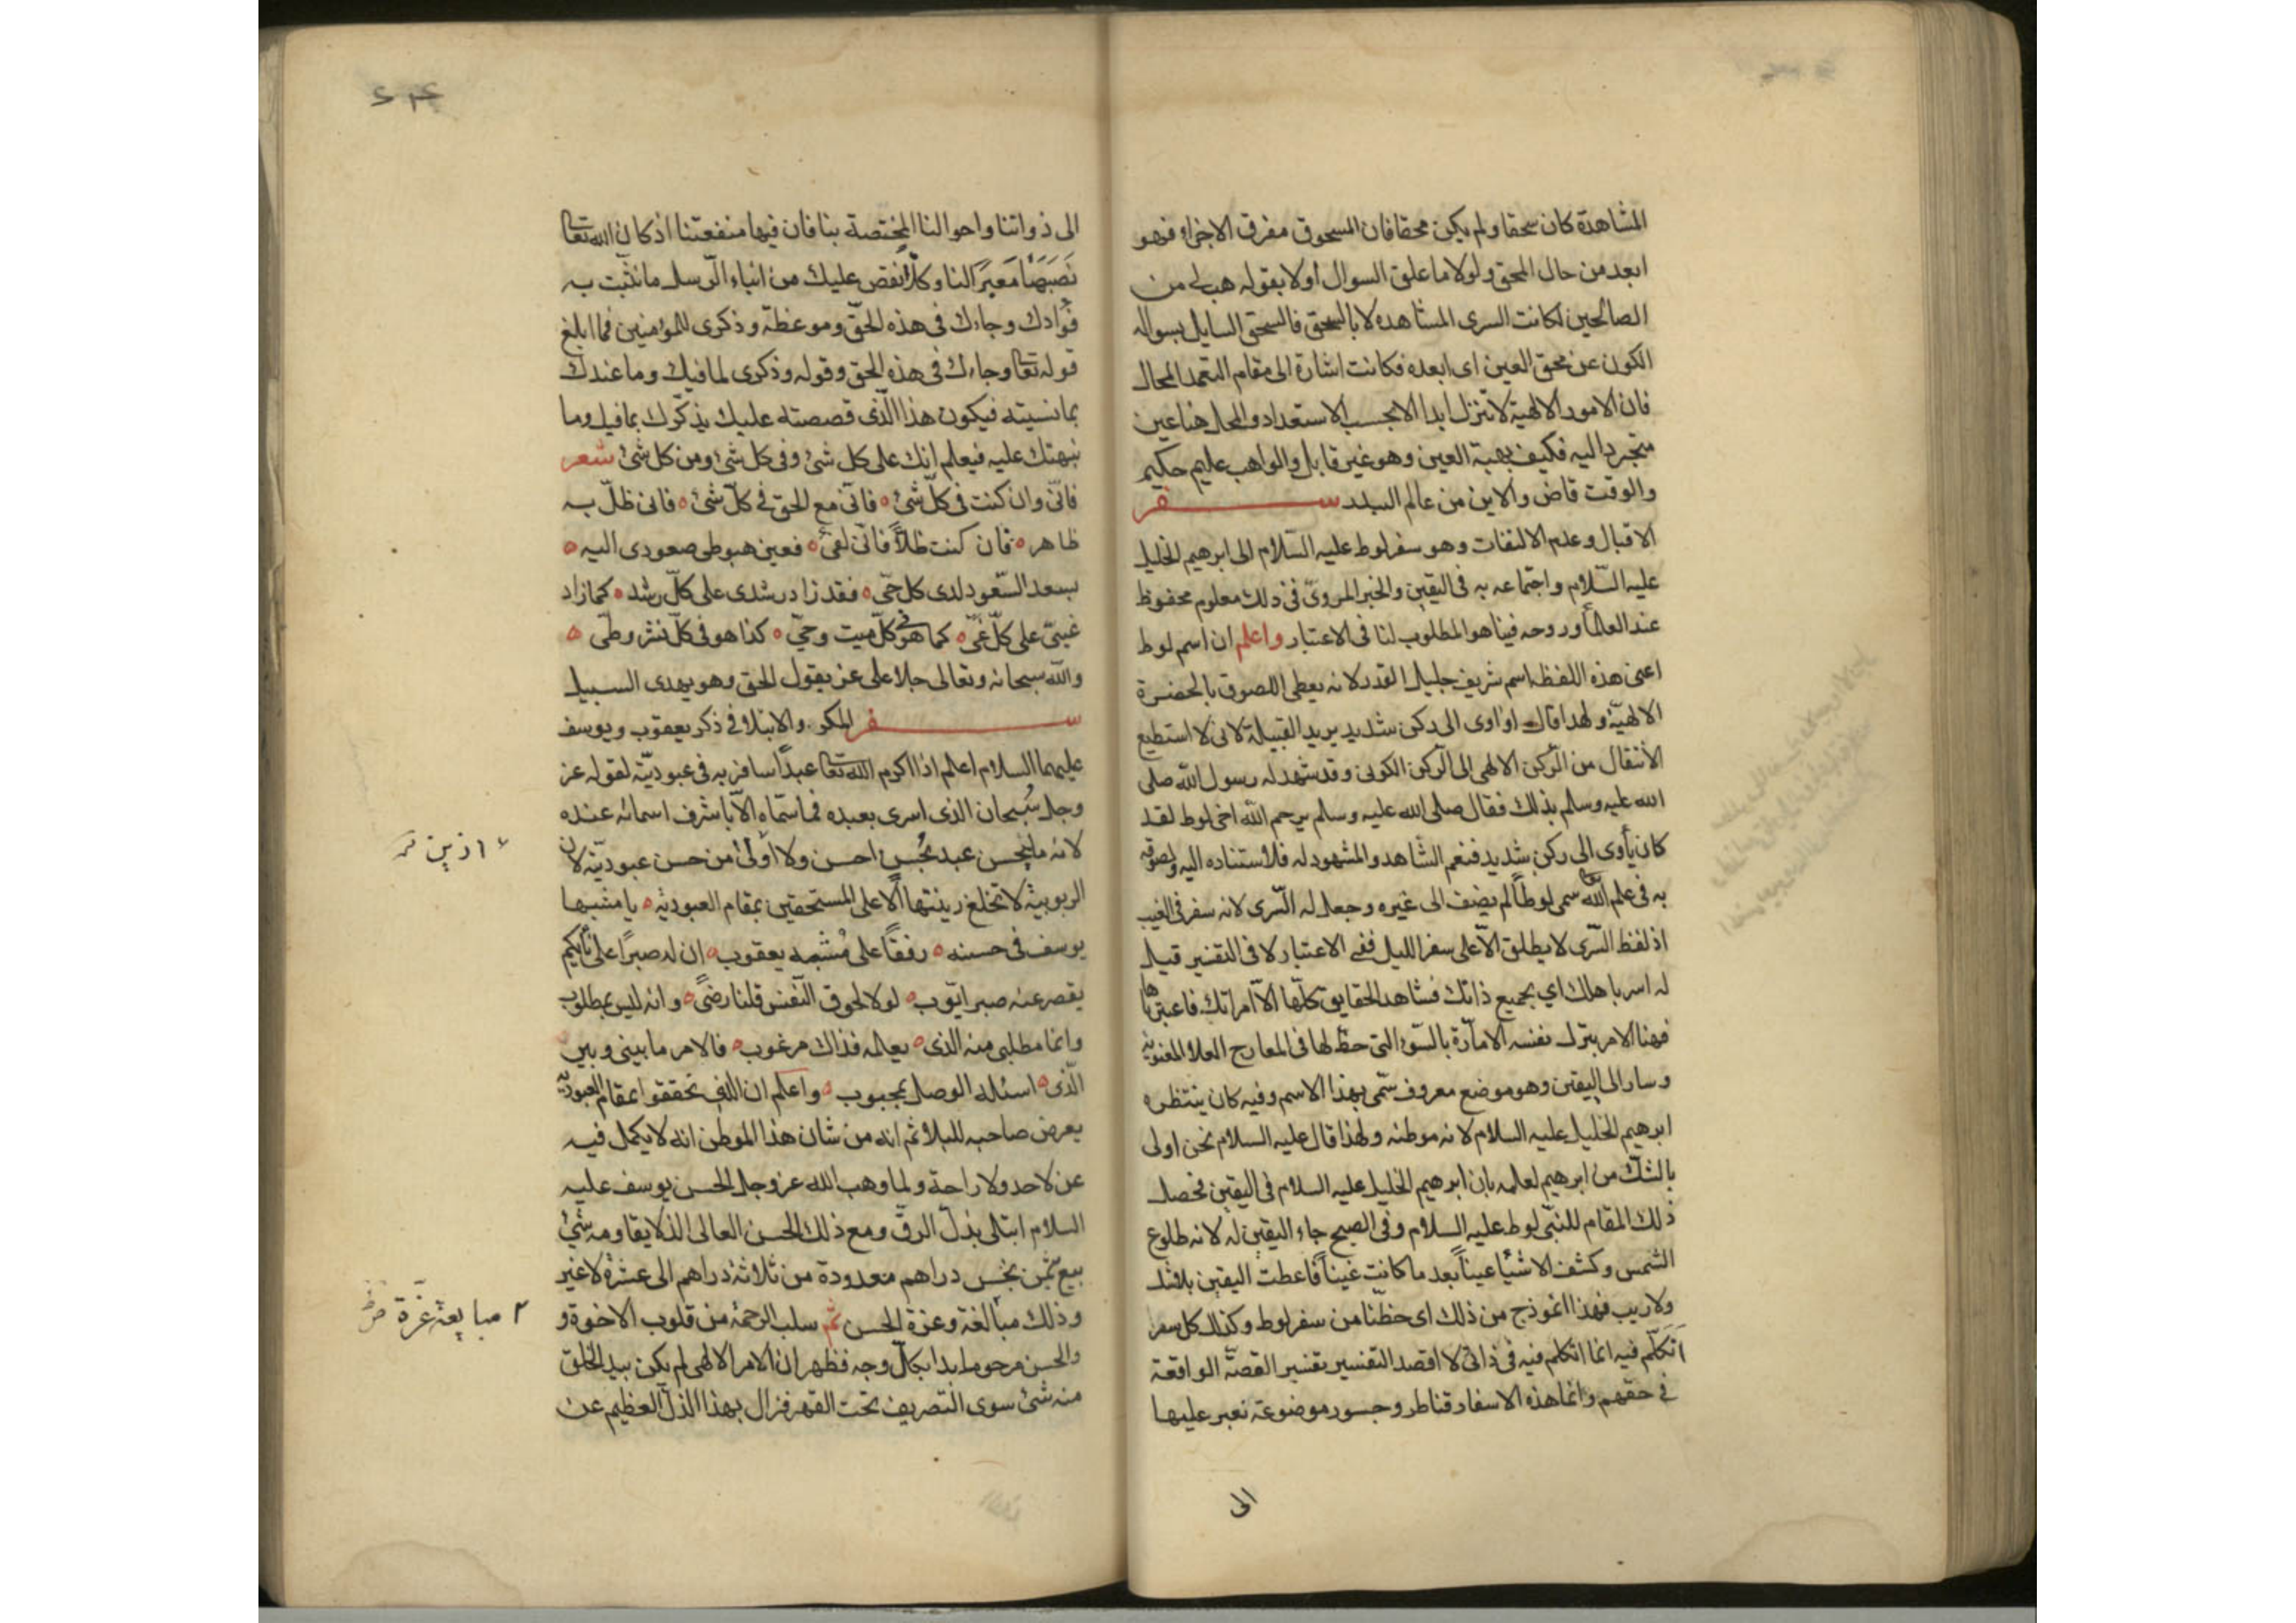 المشاهدة كان سحقا ولم يكن محقا فان المسحوق مفرق الاجزاء فهو
ابعد من حال المحق ولولا ما علق السوال أولا بقوله هب لي من
الصالحين لكانت السرى المشاهده لا بالسحق فالسحق السايل بسواله
الكون عن محق العين اى ابعده فكانت اشارة الى مقام التعمد المحال
فان الامور الالهية لا تتنزل ابدا الا بحسب الاستعداد والمحل هنا عين
متجرد اليه فكيف بهبة العين وهو غير قابل والواهب عليم حكيم
والوقت قاض والاين من عالم السدد سفر
الاقبال وعدم الالتفات وهو سفر لوط عليه السلام الى ابرهيم الخليل
عليه السّلام واجتماعه به فى اليقين والخبر المروىّ فى ذلك معلوم محفوظ
عند العلمأ وروحه فينا هو المطلوب لنا فى الاعتبار واعلم ان اسم لوط
اعنى هذه اللفظه اسم شريف جليل القدر لانه يعطى اللصوق بالحضرة
الالهيّة ولهذا قال او اوى الى ركن شديد يريد القبيلة لانى لا استطيع
الأنتقال من الرّكن الالهى الى الرّكن الكونى وقد شهد له رسول الله صلى
الله عليه وسلم بذلك فقال صلى الله عليه وسلم يرحم الله اخى لوط لقد
كان يأوى الى ركن شديد فنعم الشاهد والمشهود له فلأستناده اليه ولصوقه
به فى علم الله تعا سمى لوطاً لم يضف الى غيره وجعل له السّرى لانه سفر فى الغيب
اذ لفظ السّرى لا يطلق الاّ على سفر الليل ففى الاعتبار لا فى التفسير قيل
له اسر باهلك اي بجميع ذاتك فشاهد الحقايق كلّها الاّ امراتك فاعتبرها
فهنا الامر بترك نفسه الامّارة بالسّوء التى حظ لها فى المعارج العلا المعنويّة
وسار الى اليقين وهو موضع معروف سّمى بهذا الاسم وفيه كان ينتظره
ابرهيم الخليل عليه السلام لانه موطنه ولهذا قال عليه السلام نحن اولى
بالشكّ من ابرهيم لعلمه بان ابرهيم الخليل عليه السلام فى اليقين فحصل
ذلك المقام للنبّى لوط عليه السلام وفى الصبح جاء اليقين له لانه طلوع
الشمس وكشف الاشيأ عيناً بعد ما كانت غيباً فاعطت اليقين بلا شك
ولا ريب فهذا انموذج من ذلك اى حظّنا من سفر لوط وكذلك كل سفر
أتكلّم فيه انما اتكلم فيه فى ذاتى لا اقصد التفسير تفسير القصّة الواقعة
فى حقهم وانما هذه الاسفار قناطر وجسور موضوعة نعبر عليها
الى
الى ذواتنا واحوالنا المختصة بنا فان فيها منفعتنا اذ كان الله تعا
نَصَبَهَا مَعبَرًا لنا وكلاًّ نقص عليك من انباء الرّسل ما نثبّت به
فؤادك وجاءك فى هذه الحقّ وموعظة وذكرى للمؤمنين فما ابلغ
قوله تعا وجاءك فى هذه الحق وقوله وذكرى لما فيك وما عندك
بما نسيته فيكون هذا الّذى قصصته عليك يذكّرك بما فيك وما
نبهتك عليه فيعلم انك على كل شئ وفى كل شئ ومن كل شئ شعر
فانّى وان كنت فى كلّ شئ ه فانّى مع الحق فى كلّ شئ ه فانى ظلّ به
ظاهر ه فان كنت ظلاًّ فانّى لفئ ه فعين هبوطى صعودى اليه ه
بسعد السّعود لدى كل حىّ ه فقد زاد رشدى على كلّ رشد ه كما زاد
غيىّ على كلّ غىّ ه كما هو فى كلّ ميت وحىّ ه كذا هو فى كلّ نشر وطىّ ه
والله سبحانه وتعالى جلا على عن يقول الحق وهو يهدى السبيل
سفر المكر والابتلا فى ذكر يعقوب ويوسف
عليهما السلام اعلم اذا اكرم الله تعا عبداً سافر به فى عبوديّته لقوله عز
وجل سُبحان الذى اسرى بعبده فما سمّاه الاّ باشرف اسمائه عنده
لانه ما يحسن عبد بحُسن احسن ولا اولى من حسن عبوديّته لان
الربوبية لا تخلع زينتها الاّ على المستحقين بمقام العبودية ه يا مشبها
يوسف فى حسنه ه رفقاً على مُشبه يعقوب ه ان له صبراً على نأيكم
يقصر عنه صبر ايّوب ه لولا لحوق النّفس قلنا رضىً ه وانه ليس بمطلوب
وانما مطلبى منه الذى ه يعلمه فذاك مرغوب ه فالامر ما بينى وبين
الّذى ه اسئله الوصل بمحبوب ه واعلم ان الذى تحققوا بمقام العبوديّه
يعرض صاحبه للبلا ثم انه من شان هذا الموطن انه لا يكمل فيه
عن لاحد ولا راحة ولما وهب الله عز وجل الحسن يوسف عليه
السلام ابتلى بذلّ الرقّ ومع ذلك الحسن العالى الذى لا يقاومه شئ
بيع بثمن بخس دراهم معدودة من ثلاثة دراهم الى عشرة لا غير
وذلك مبالغة وعزة الحسن ثمّ سلب الرحمة من قلوب الاخوة و
والحسن مرحوم ابدا بكلّ وجه فظهر ان الامر الالهى لم يكن بيد الخلق
منه شئ سوى التصريف تحت القهر فزال بهذا الذلّ العظيم عن
ازين
مبايعة غرّة